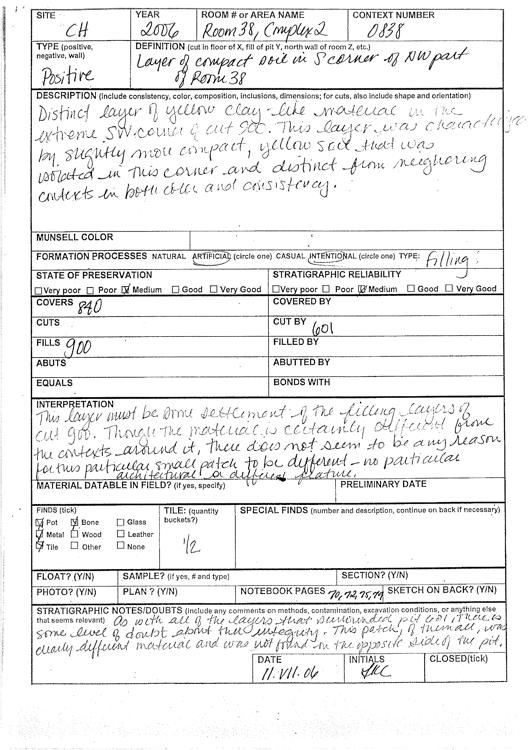 SITE YEAR ROOM # or AREA NAME CONTEXT NUMBER
CH 2006 Room 38, Complex 2 0838
TYPE (positive, negative, wall) DEFINITION (cut in floor of X, fill of pit Y, north wall of room Z, etc.)
Positive Layer of compact soil in S corner of NW part
of Room 38
DESCRIPTION (Include consistency, color, composition, inclusions, dimensions; for cuts, also include shape and orientation)
Distinct layer of yellow clay-like material in the
extreme SW corner of cut 900. This layer was characterize
by slightly more compact, yellow soil that was
isolated in this corner and distinct from neighboring
contexts in both color and consistency.
MUNSELL COLOR
FORMATION PROCESSES NATURAL ARTIFICIAL (circle one) CASUAL INTENTIONAL (circle one) TYPE: filling?
STATE OF PRESERVATION STRATIGRAPHIC RELIABILITY
Very poor Poor Medium Good Very Good Very poor Poor Medium Good Very Good
COVERS 840 COVERED BY
CUTS CUT BY 601
FILLS 900 FILLED BY
ABUTS ABUTTED BY
EQUALS BONDS WITH
INTERPRETATION
This layer must be some settlement of the filling layers of
cut 900. Though the material is certainly different from
the contexts around it, there does not seem to be any reason
for this particular small patch to be different - no particular
architectural or different feature.
MATERIAL DATABLE IN FIELD? (if yes, specify) PRELIMINARY DATE
FINDS (tick) TILE: (quantity buckets?) SPECIAL FINDS (number and description, continue on back if necessary)
Pot Bone Glass
Metal Wood Leather
Tile Other None
1/2
FLOAT? (Y/N) SAMPLE? (if yes, # and type) SECTION? (Y/N)
PHOTO? (Y/N) PLAN? (Y/N) NOTEBOOK PAGES 70, 72, 75, 79 SKETCH ON BACK? (Y/N)
STRATIGRAPHIC NOTES/DOUBTS (include any comments on methods, contamination, excavation conditions, or anything else
that seems relevant) As with all of the layers that surrounded pit 601, there is
some level of doubt about their integrity. This patch, of them all, was
clearly different material and was not found on the opposite side of the pit.
DATE INITIALS CLOSED(tick)
11.VII.06